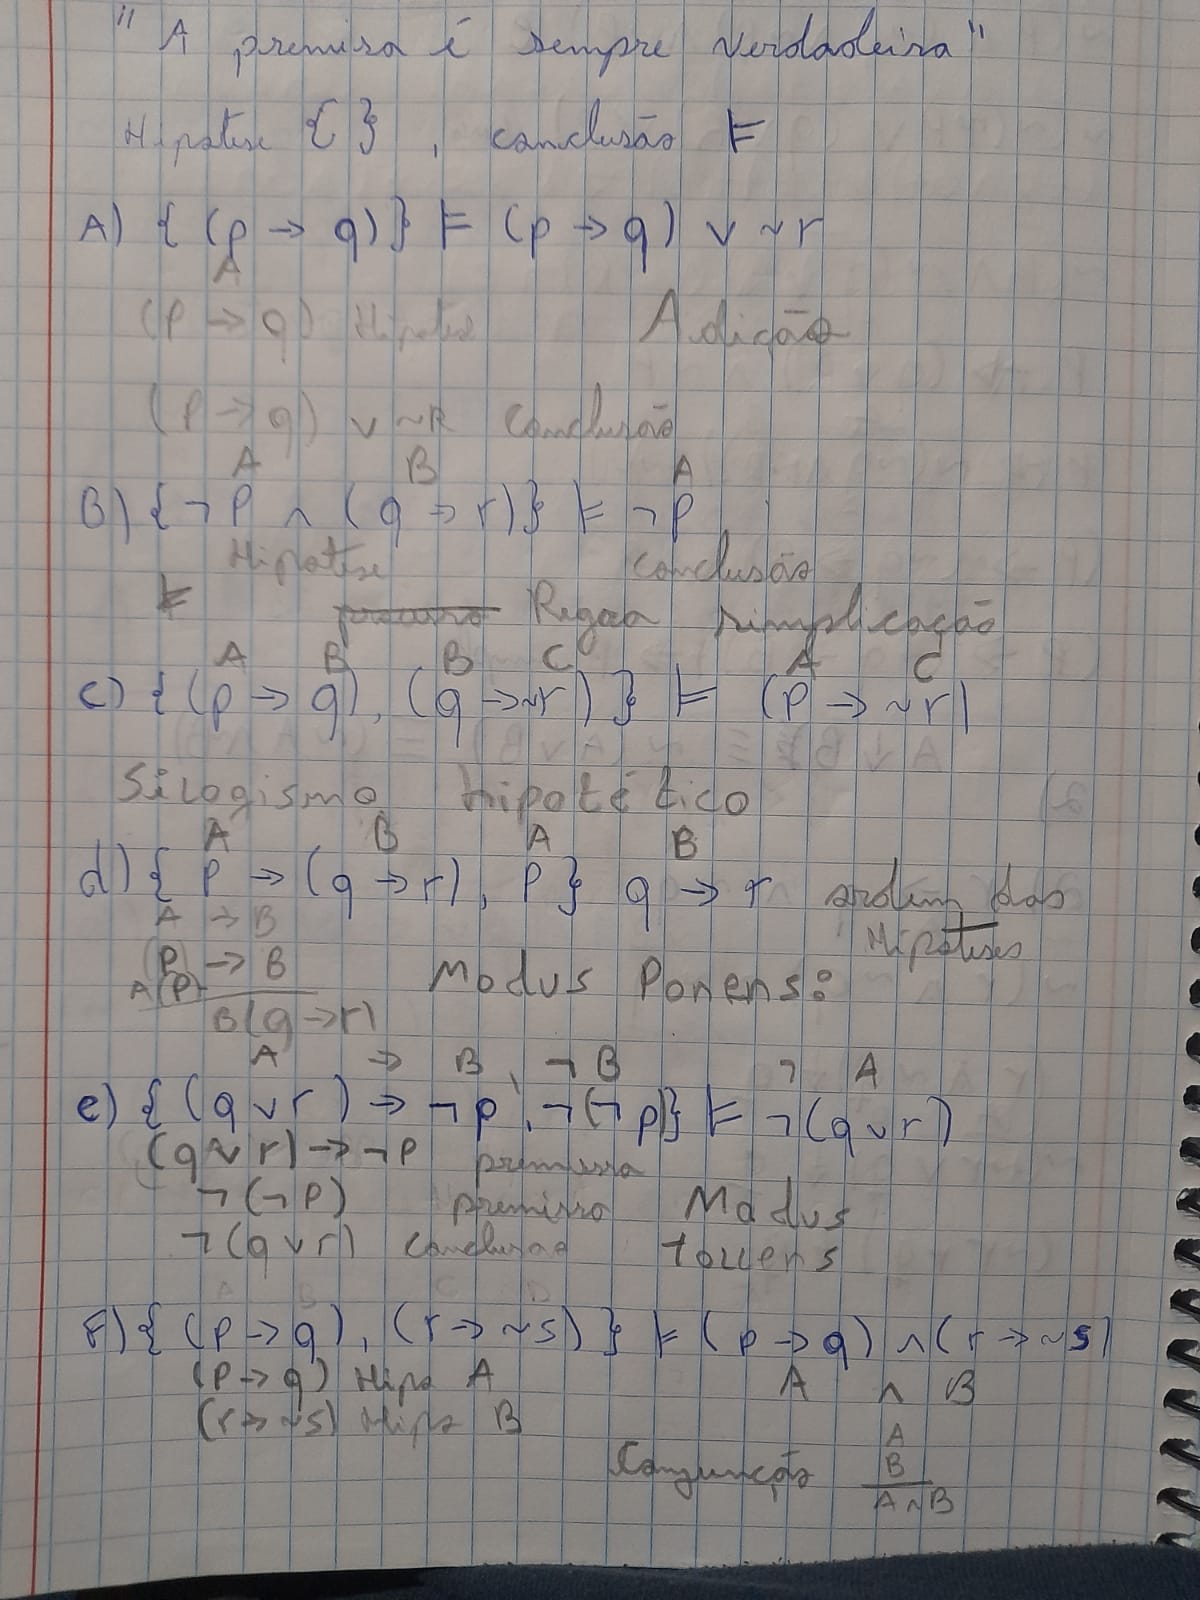 "A premissa é sempre verdadeira"
Hipótese { } , conclusão ⊨
A) { (p → q)} ⊨ (p → q) ∨ ~r
A
(P → q) Hipótese Adição
(P → q) ∨ ~R Conclusão
A B A
B) {¬P ∧ (q → r)} ⊨ ¬P
Hipótese conclusão
⊨ Regra simplicação
A B B C A C
c) {(p → q), (q → ~r)} ⊨ (p → ~r)
Silogismo Hipotético
A B A B
d) { P → (q → r), P} q → r ordem das
A → B Hipóteses
(P) → B Modus Ponens:
A(P)
B(q → r)
A → B, ¬B ¬ A
e) {(q ∨ r) → ¬p, ¬(¬p)} ⊨ ¬(q ∨ r)
(q ∨ r) → ¬P premissa
¬(¬P) premissa Modus
¬(q ∨ r) conclusão tollens
F) {(p → q), (r → ~s)} ⊨ (p → q) ∧ (r → ~s)
(P → q) Hipo A A ∧ B
(r → ~s) Hipo B
A
Conjunção B
A ∧ B